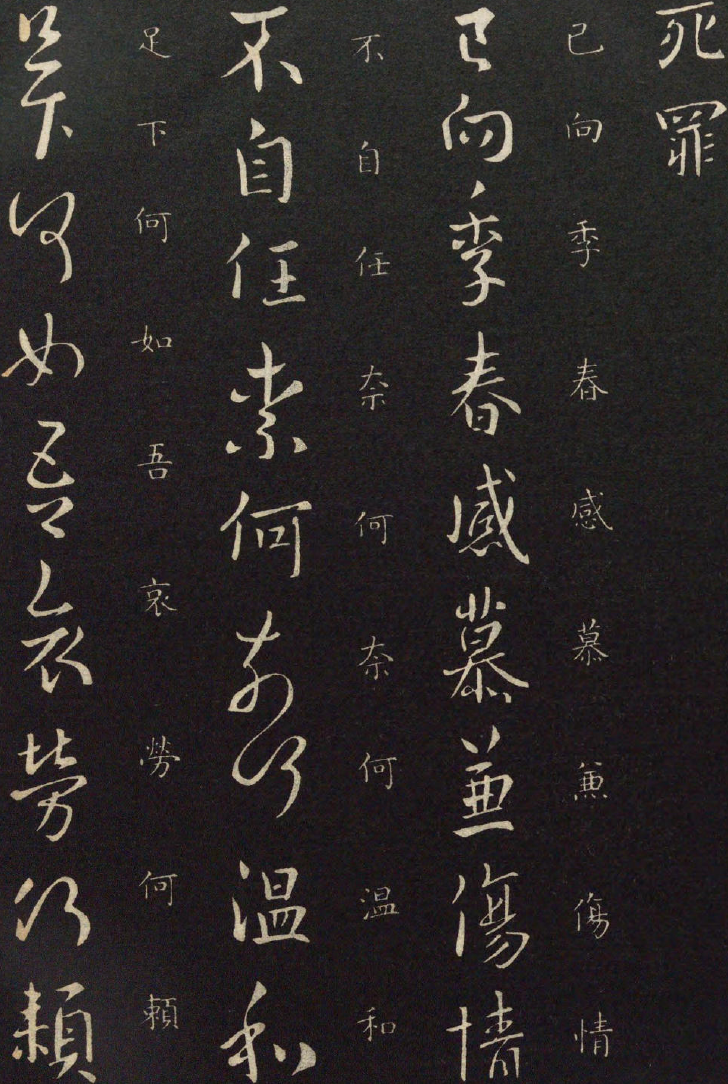 死罪
已向季春感慕兼傷情
已向季春感慕兼傷情
不自任奈何奈何温和
不自任奈何奈何温和
足下何如吾哀勞何頼
足下何如吾哀勞何頼